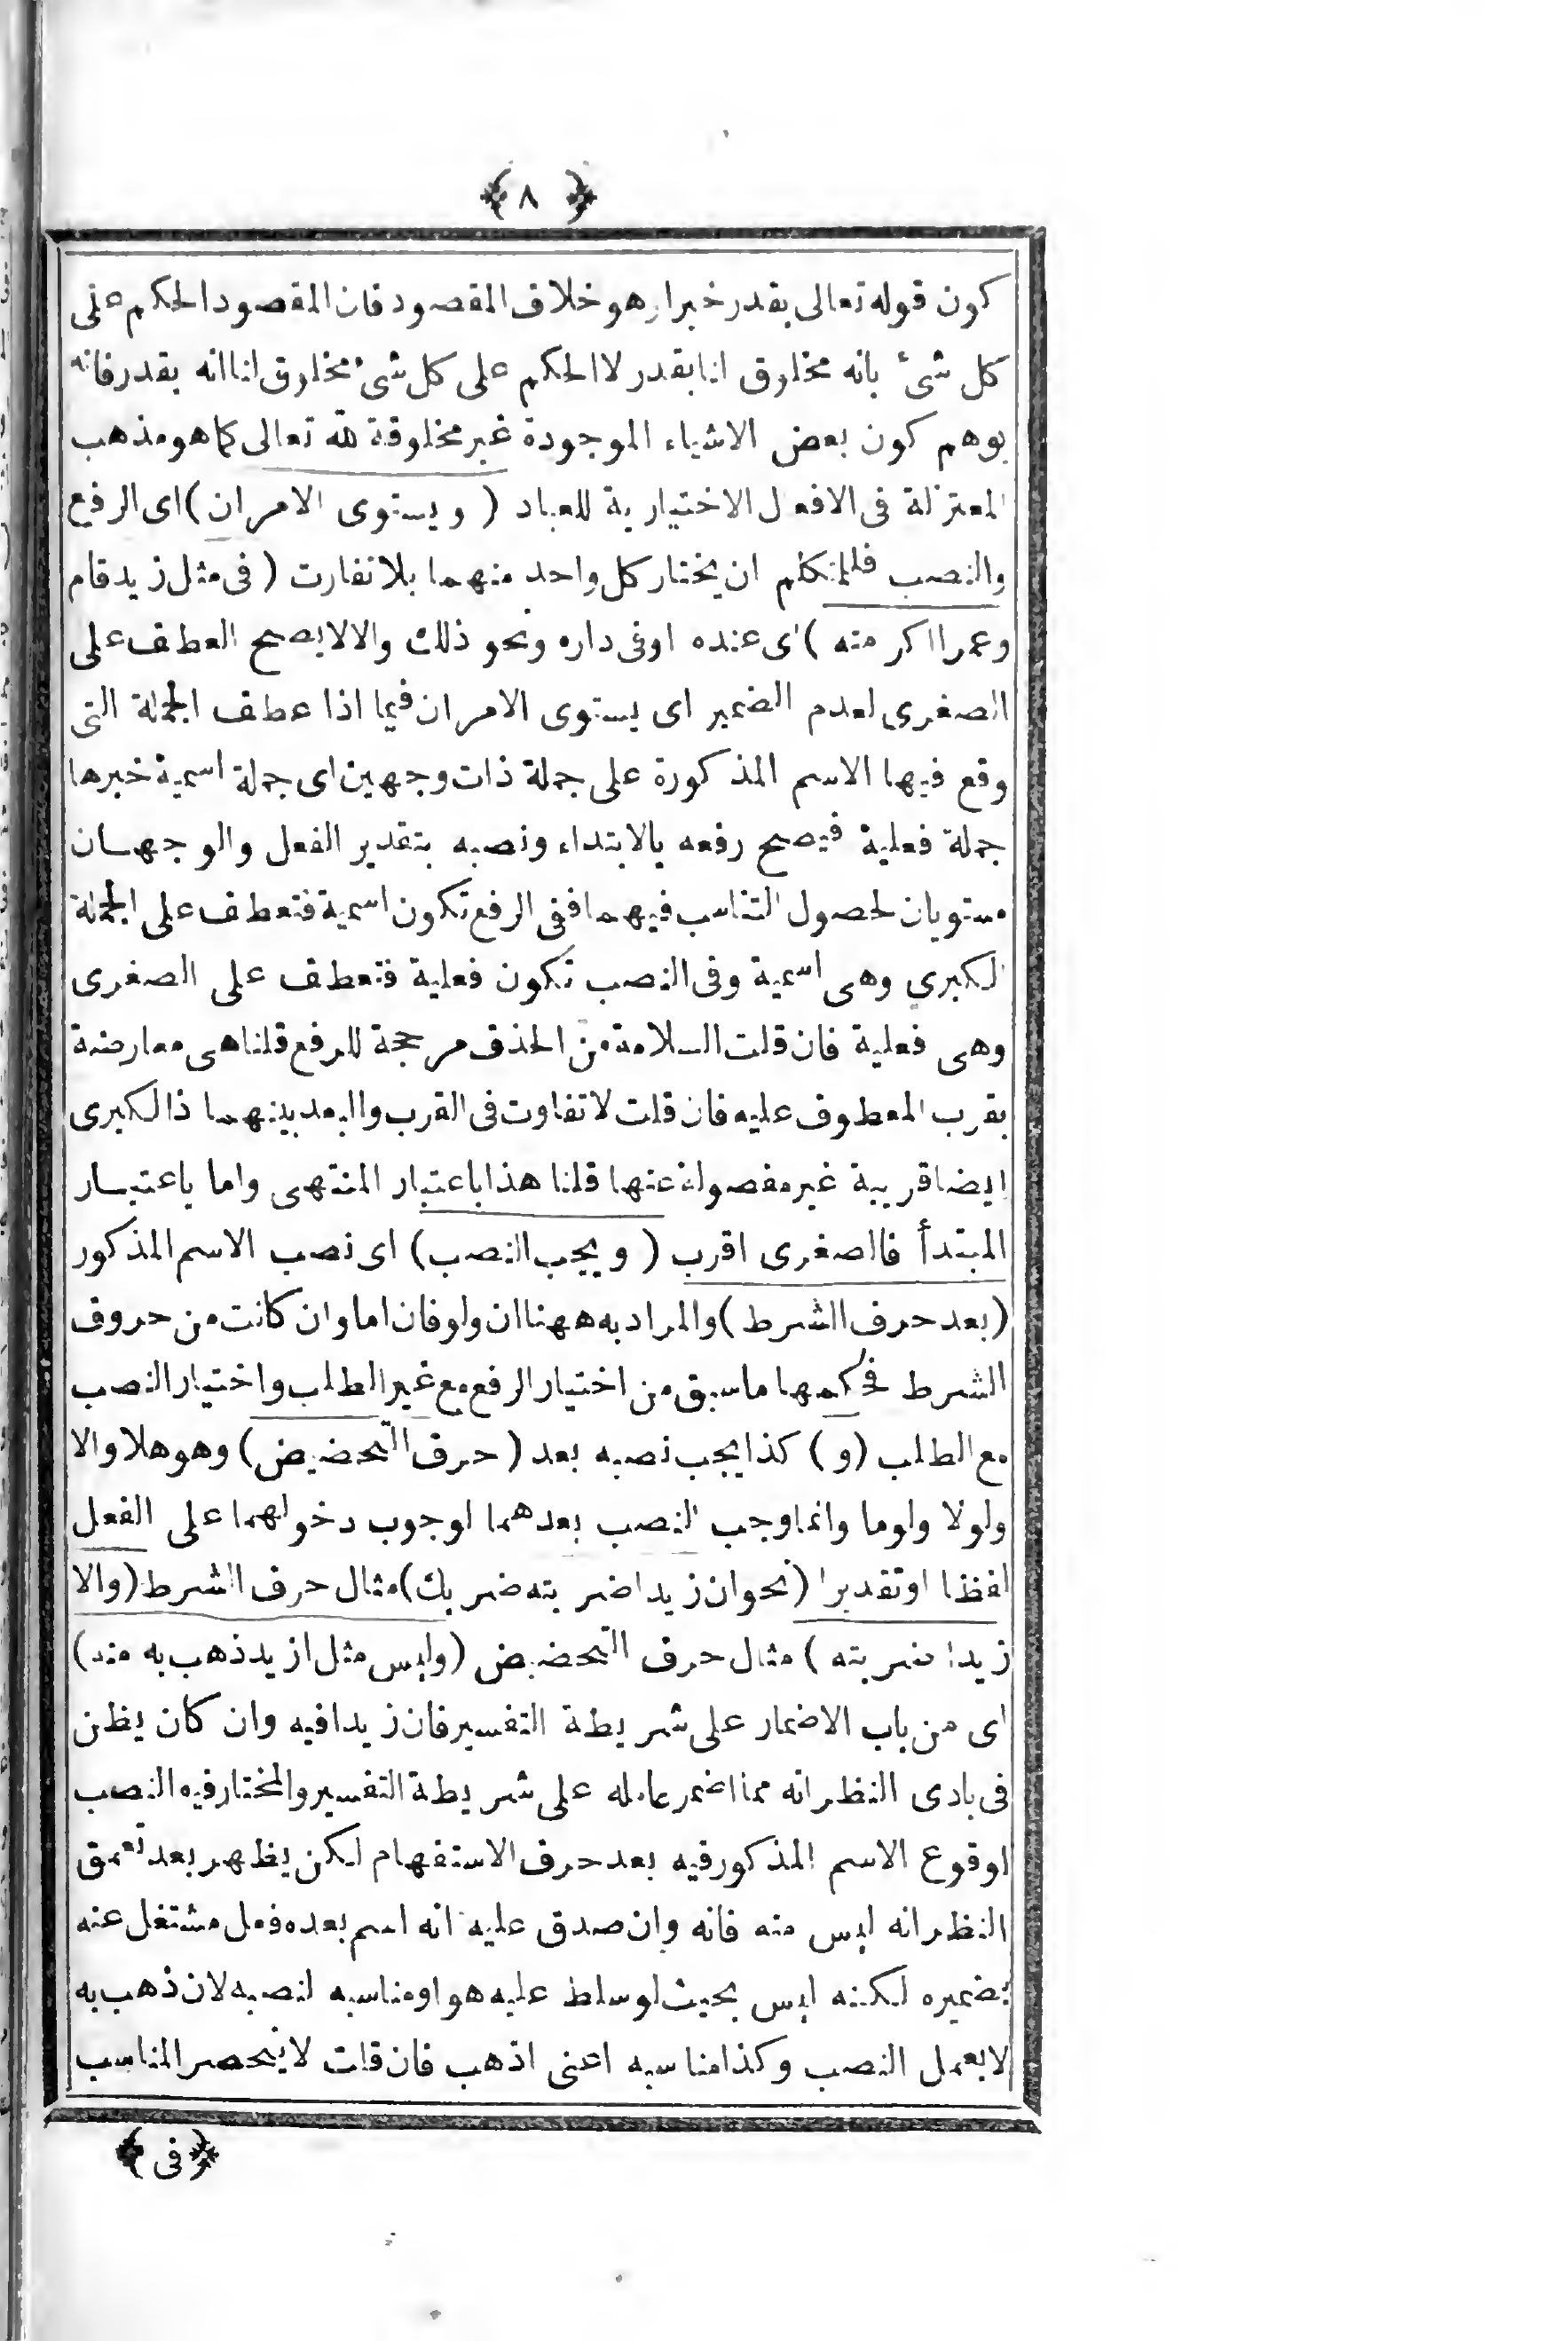 ﴿ ٨ ﴾
كون قوله تعالى بقدر خبرا وهو خلاف المقصود فان المقصود الحكم على
كل شئ بانه مخلوق لنا بقدر لا الحكم على كل شئ مخلوق لنا انه بقدر فانه
يوهم كون بعض الاشياء الموجودة غير مخلوقة لله تعالى كما هو مذهب
المعتزلة فى الافعال الاختيارية للعباد ( ويستوى الامران ) اى الرفع
والنصب فللمتكلم ان يختار كل واحد منهما بلا تفاوت ( فى مثل زيد قام
وعمرا اكرمته ) اى عنده او فى داره ونحو ذلك والا لا يصح العطف على
الصغرى لعدم الضمير اى يستوى الامران فيما اذا عطف الجملة التى
وقع فيها الاسم المذكورة على جملة ذات وجهين اى جملة اسمية خبرها
جملة فعلية فيصح رفعه بالابتداء ونصبه بتقدير الفعل والوجهان
مستويان لحصول التناسب فيهما ففى الرفع تكون اسمية فتعطف على الجملة
الكبرى وهى اسمية وفى النصب تكون فعلية فتعطف على الصغرى
وهى فعلية فان قلت السلامة من الحذف مرجحة للرفع قلنا هى معارضة
بقرب المعطوف عليه فان قلت لا تفاوت فى القرب والبعد بينهما اذ الكبرى
ايضا قريبة غير مفصولة عنها قلنا هذا باعتبار المنتهى واما باعتبار
المبتدأ فالصغرى اقرب ( ويجب النصب ) اى نصب الاسم المذكور
( بعد حرف الشرط ) والمراد به ههنا ان ولو فان اما وان كانت من حروف
الشرط فحكمها ما سبق من اختيار الرفع مع غير الطلب واختيار النصب
مع الطلب ( و ) كذا يجب نصبه بعد ( حرف التحضيض ) وهو هلا والا
ولولا ولوما وانما وجب النصب بعدهما لوجوب دخولهما على الفعل
لفظا او تقديرا ( نحو ان زيدا ضربته ضربك ) مثال حرف الشرط ( والا
زيدا ضربته ) مثال حرف التحضيض ( وليس مثل ازيد ذهب به منه )
اى من باب الاضمار على شريطة التفسير فان زيدا فيه وان كان يظن
فى بادى النظر انه مما اضمر عامله على شريطة التفسير والمختار فيه النصب
لوقوع الاسم المذكور فيه بعد حرف الاستفهام لكن يظهر بعد تعمق
النظر انه ليس منه فانه وان صدق عليه انه اسم بعده فعل مشتغل عنه
بضميره لكنه ليس بحيث لو سلط عليه هو او مناسبه لنصبه لان ذهب به
لا يعمل النصب وكذا مناسبه اعنى اذهب فان قلت لا ينحصر المناسب
﴿ فى ﴾